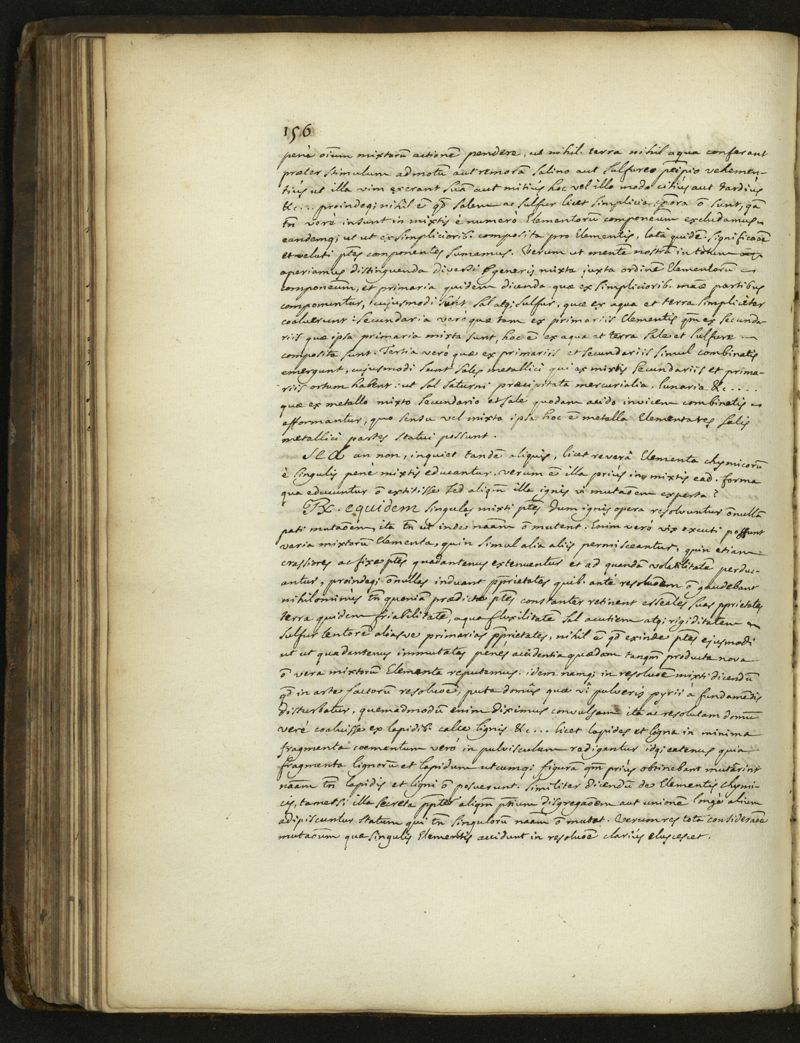 156
penè oium mixtorū actionē pendere, ut nihil terra nihil aqua conferant
præter stimulum ad motū aut remorā salino aut sulfureo pipio vehemen-
tius ut illa vim exerant suā aut mitius hoc vel illo modo citiùs aut tardiùs
&c... proindeq; nihil ē qd salem ac sulfur licet simplicia corpora ō sunt, qā
tñ verè insunt in mixtis è numerò Elementorū componeum excludamus
eandemq; ut ut ex simplicioribꝰ composita pro Elementis, latā quidē significaōe
et veluti ptes componentes sumamus. Verum ut mentē nostrā in totum
aperiamus distinguenda diversi generis mixta juxta ordinē Elementorū
componeum, et primaria quidem dicenda quæ ex simplicioribꝰ māæ partibus
componuntur, cujusmodi sunt sal atq; sulfur, quæ ex aqua et terra simpliciter
coaluerunt: secundaria verò quæ tam ex primariis Elementis qm ex secunda-
riis quæ ipsa primaria mixta sunt, hoc ē ex aqua et terra sale et sulfure
composita sunt. Tertia verò quæ ex primariis et secundariis simul combinatis
emergunt, cujusmodi sunt sales metallici qui ex mixtis secundariis et prima-
riis ortum habent: ut sal saturni præcipitata mercurialia, lunaria &c.....
quæ ex metallo mixto secundario et sale quodam acido invicem combinatis
efformantur, quo sensu vel mixta ipsa hoc ē metalla Elementares salis
metallici partes statui possunt.
SED an non, inquiet tandē aliquis, licet reverà Elementa chymicorū
è singulis penè mixtis educantur, verum ē illa priùs in mixtis ead. forma
qua educuntur ō extitisse sed aliqm illa ignis vi mutaōem experta?
Rx. equidem singulas mixti ptes dum ignis opera resolvuntur ōnullā
pati mutaōem, ita tñ ut inde naām ō mutent. Enim verò vix executi possunt
varia mixtorū Elementa, quin simul alia aliis permisceantur, quin etiam
crassiores ac fixæ ptes quadantenus extenuentur et ad quandā volatilitatē perduc-
antur, proindeq; ōnullas induant pprietates quibꝰ ante resoluōem ō gaudebant
nihilominus tñ quoniā prædictæ ptes constanter retinent essēales suas pprietates,
terra quidem friabilitatē, aqua fluxilitatē sal acutiem atq; rigiditatem
sulfur lentorē aliasve primarias pprietates, nihil ē qd exinde ptes ejusmodi
ut ut quadantenus immutatas penes accidentia quædam tanqm producta nova
ō vera mixtorū Elementa reputemus: idem namq; in resoluōe mixti dicendū
qd in arte factorū resoluōe, puta domus quæ vi pulveris pyrii à fundamētis
disturbatur, quemadmodū enim diximus convulsam ac resolutam domū
verè coaluisse ex lapidibꝰ calce lignis &c... licet lapides et ligna in minima
fragmenta coementum verò in pulvisculum redigantur idq; eatenus quia
fragmenta lignorū et lapidum utcumq; figurā qm priùs obtinebant mutarint
naām tñ lapidis et ligni ō posuerunt. similiter dicendū de Elementis chymi-
cis, tametsi illa secreta ppter aliqm ptium disgregaōem aut unionē longè alium
adipiscuntur statum qui tñ singulorū naām ō mutat. Verum res tota consideraōe
mutaōum quæ singulis Elementis accidunt in resoluōe clariùs elucescet.